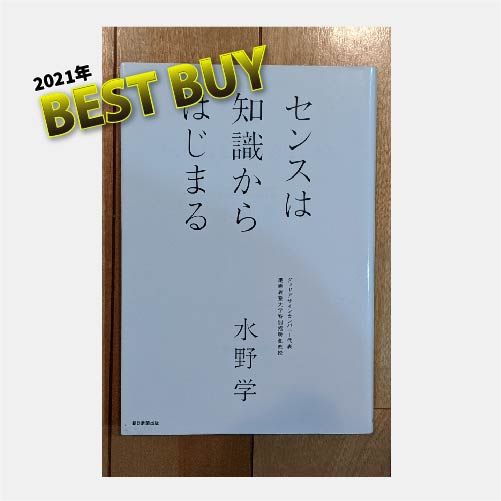 2021年
BEST BUY
センスは
知識から
はじまる
グッドデザインカンパニー代表
慶應義塾大学特別招聘准教授
水野学
朝日新聞出版